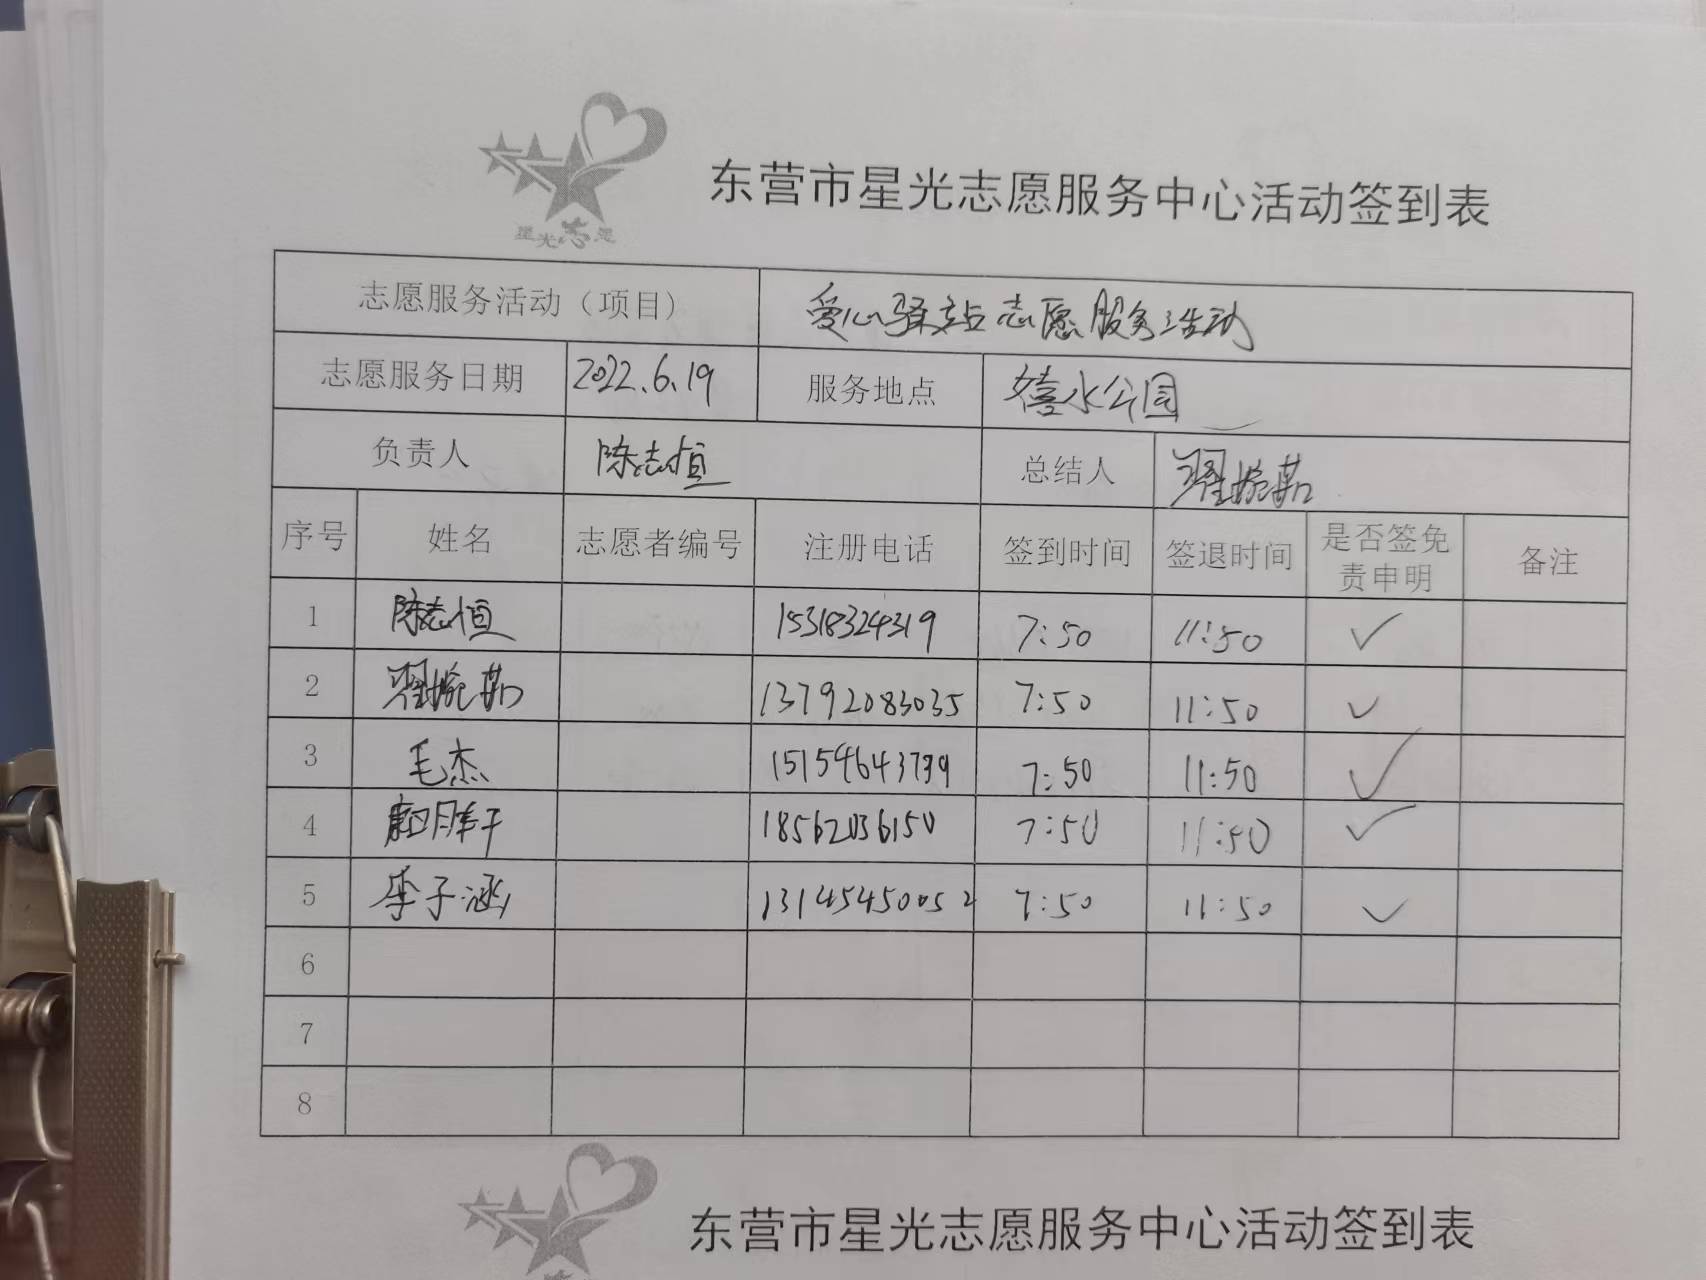 星光志愿
东营市星光志愿服务中心活动签到表
志愿服务活动（项目） 爱心驿站志愿服务活动
志愿服务日期 2022.6.19 服务地点 嬉水公园
负责人 陈志恒 总结人 翟婉茹
序号 姓名 志愿者编号 注册电话 签到时间 签退时间 是否签免责申明 备注
1 陈志恒 15318324319 7:50 11:50 ✓
2 翟婉茹 13792083035 7:50 11:50 ✓
3 毛杰 7:50 11:50 ✓
4 18562036150 7:50 11:50 ✓
5 李子涵 13145450052 7:50 11:50 ✓
6
7
8
东营市星光志愿服务中心活动签到表